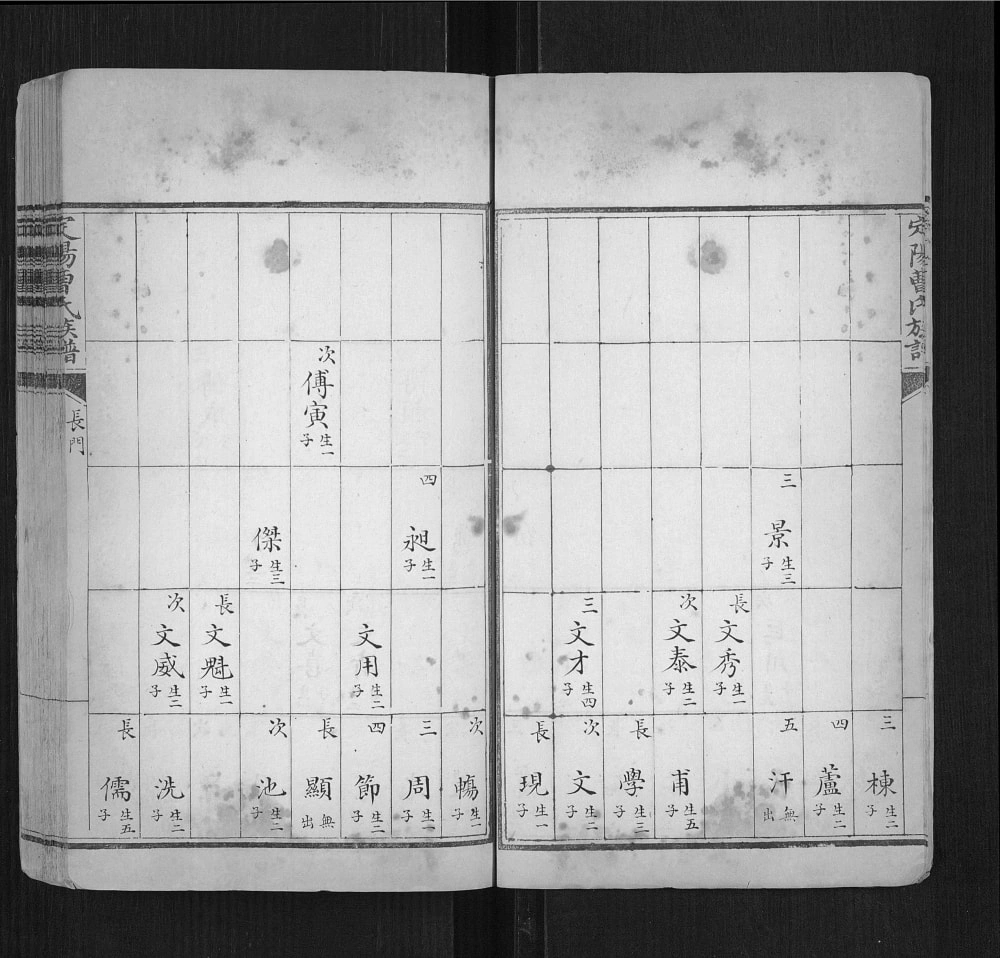 定陽曹氏族譜
三 棟 生二子
四 蘆 生二子
三 景 生三子
五 汗 無出
長 文秀 生一子
次 文泰 生二子
甫 生五子
長 學 生三子
三 文才 生四子
次 文 生二子
長 現 生一子
次 生一子
四 昶 生一子
三 周 生一子
文用 生二子
四 節 生二子
次 傅寅 生一子
長 顯 無出
傑 生三子
次 池 生二子
長 文魁 生一子
次 文威 生二子
洗 生二子
長 儒 生五子
定陽曹氏族譜
長門